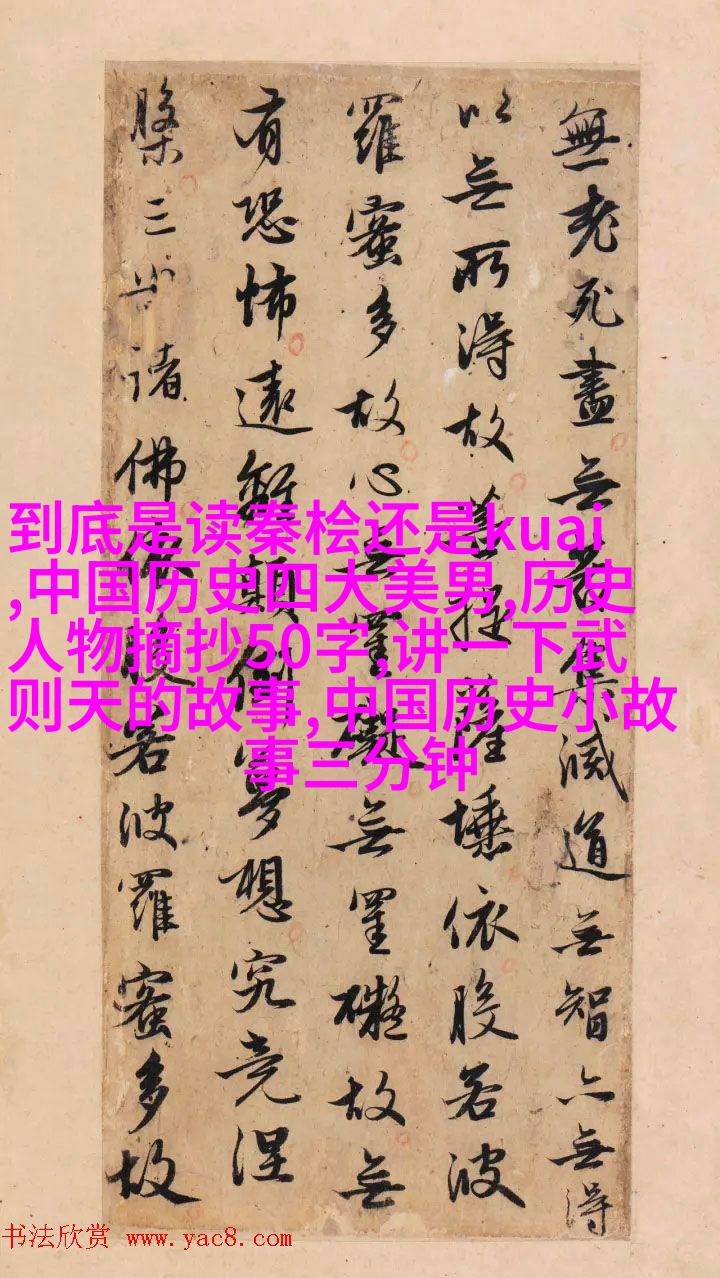 無老死盡无苦集滅道无智亦无得
以无所得故菩提薩埵依般若波
羅蜜多故心无罣礙无罣礙故无
有恐怖遠離顛倒夢想究竟涅
槃三世諸佛依般若波羅蜜多故
到底是读秦桧还是kuai
,中国历史四大美男,历史
人物摘抄50字,讲一下武
则天的故事,中国历史小故
事三分钟
书法欣赏 www.yac8.com